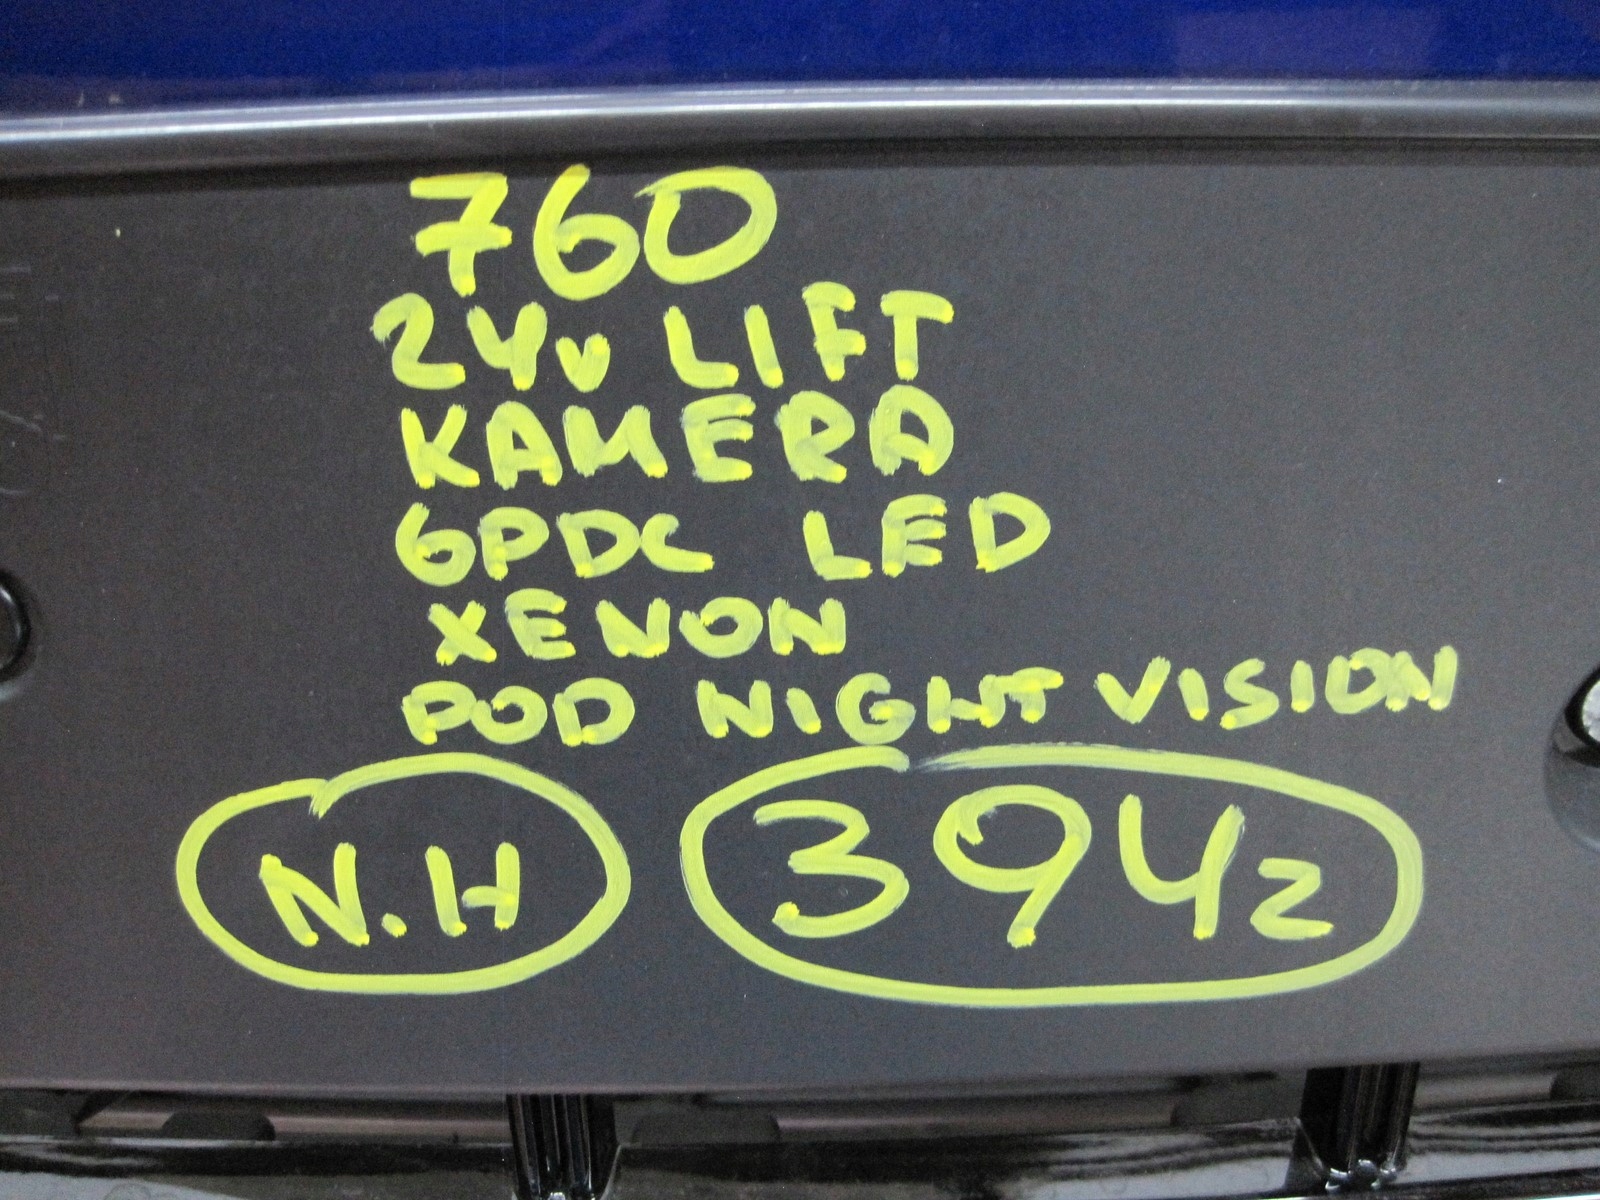 760
24v LIFT
KAMERA
6PDC LED
XENON
POD NIGHT VISION
N.H 394z